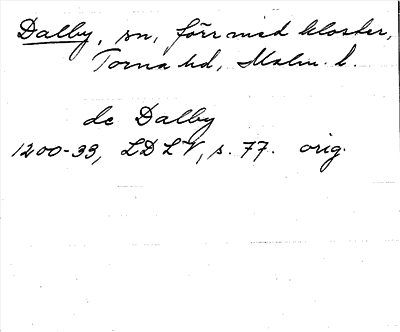 Dalby, sn, förr med kloster,
Torna hd, Malm. l.
de Dalby
1200-33, LDLV, s. 77. orig.